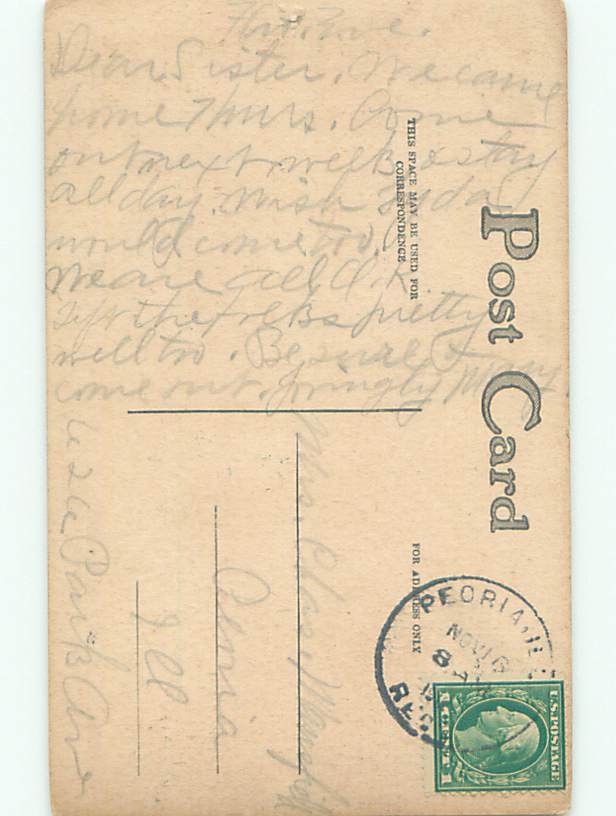 Dear Sister. We came
home Thurs. Come
out next week & stay
all day. Wish
would come too.
We are all O.K.
Left the folks pretty
well too. Be sure &
come out. May.
Post Card
THIS SPACE MAY BE USED FOR
CORRESPONDENCE
FOR ADDRESS ONLY
Mrs.
Peoria
Ill
Park Ave
PEORIA, ILL
NOV 16
8 A
REC
U.S. POSTAGE
1 CENT 1